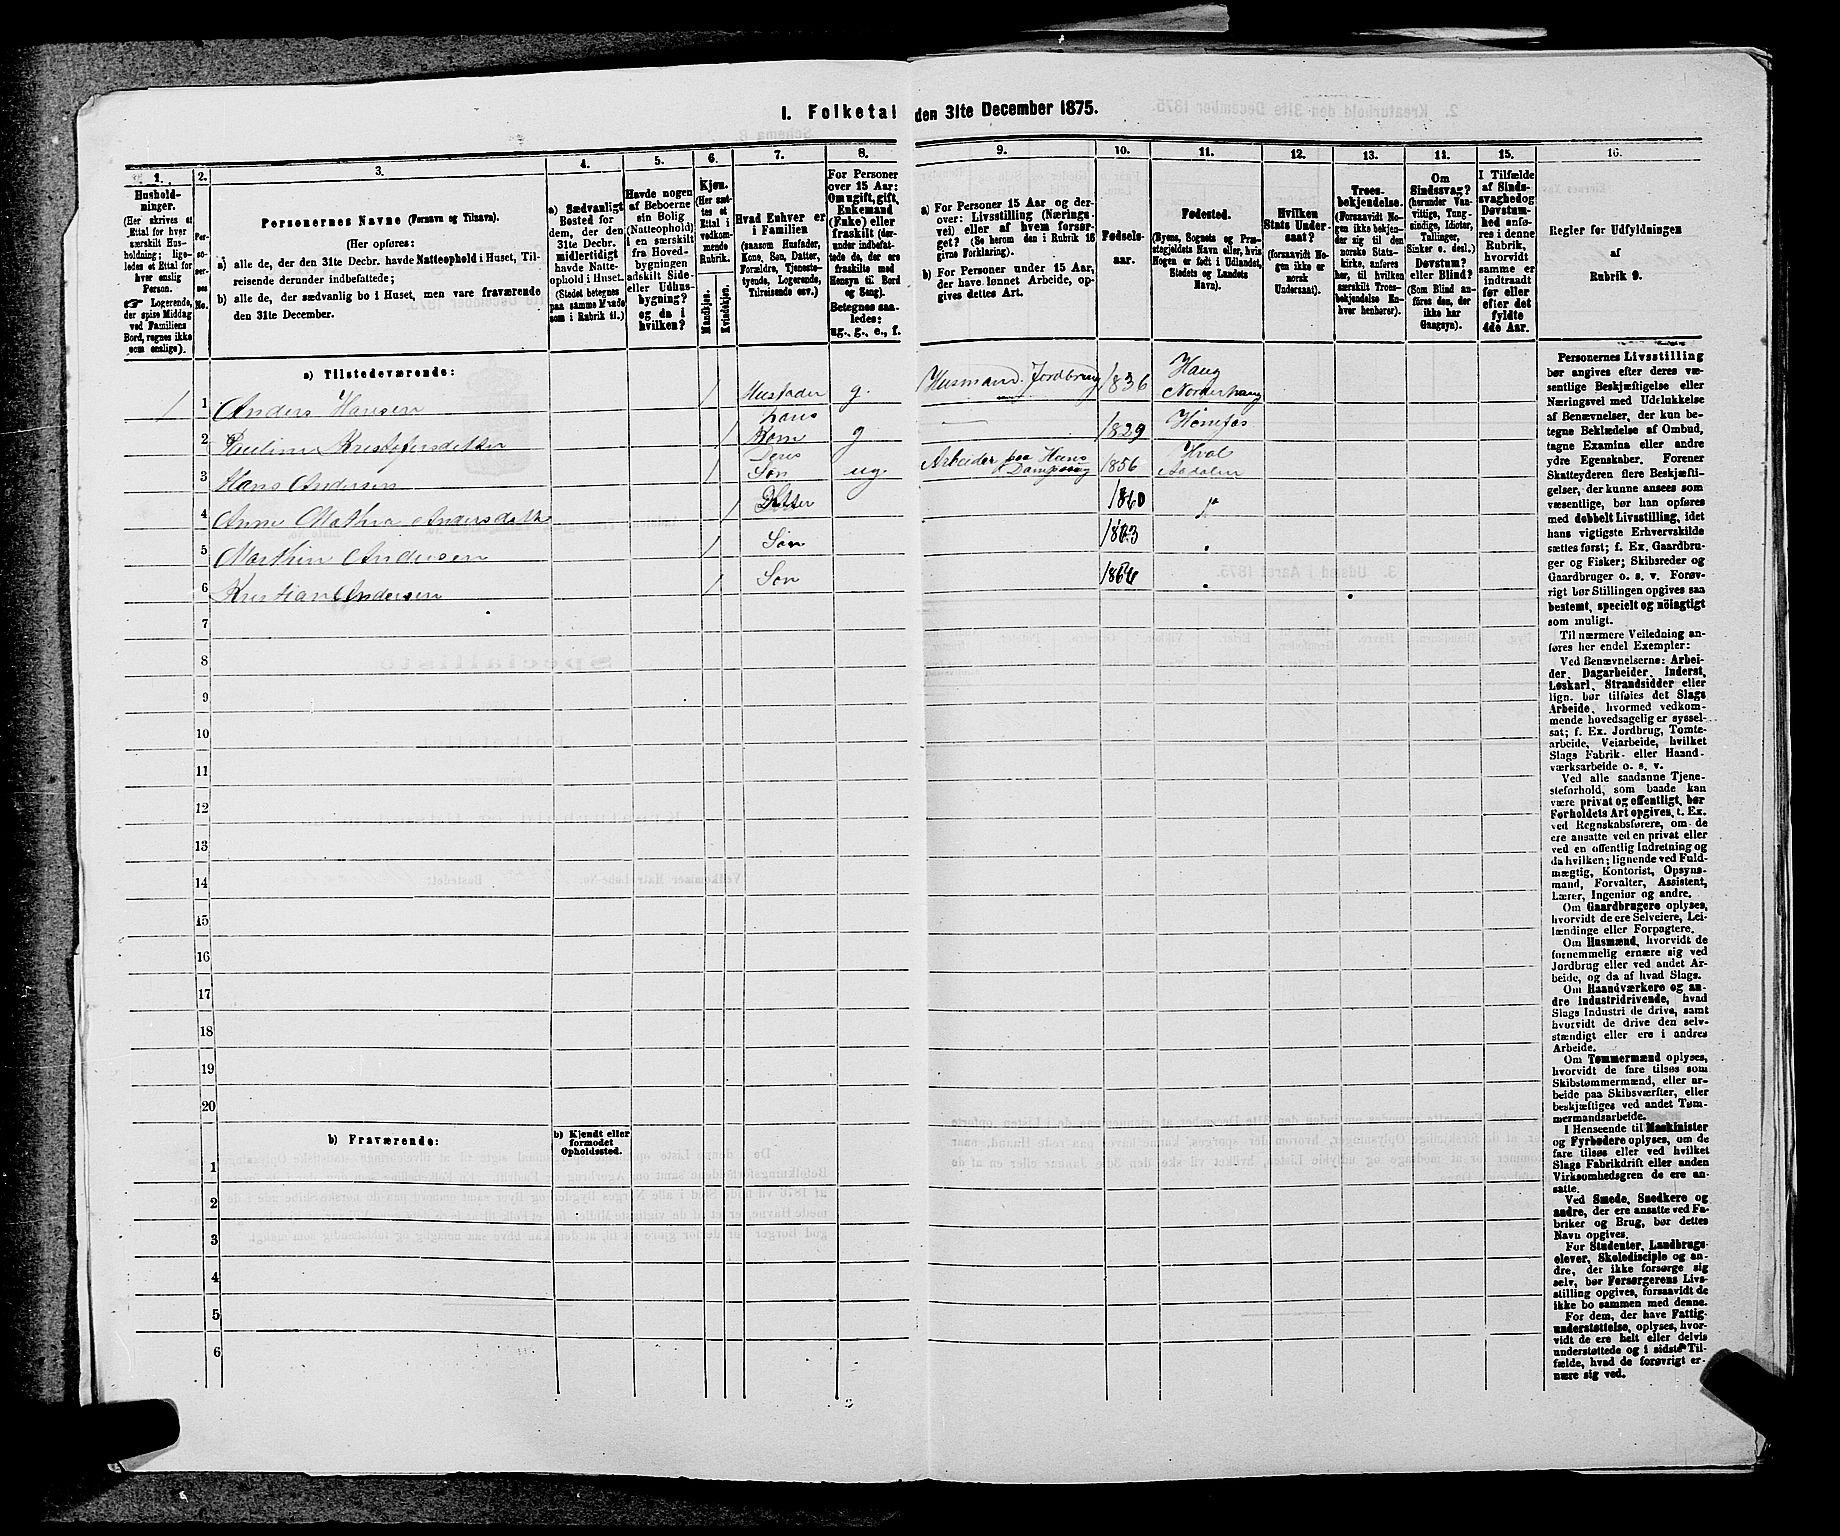 I. Folketal den 31te December 1875.
1. 2. 3. 4. 5. 6. 7. 8. 9. 10. 11. 12. 13. 11. 15. 16.
Hushold-
ninger.
(Her skrives et
Ettal for hver
særskilt Hus-
holdning; lige-
ledes et Ettal for
hver enslig
Person.
Logerende,
der spise Middag
ved Familiens
Bord, regnes ikke
som enslige).
Per-
so-
ner-
nes
No.
Personernes Navne (Fornavn og Tilnavn).
(Her opføres:
a) alle de, der den 31te Decbr. havde Natteophold i Huset, Til-
reisende derunder indbefattede;
b) alle de, der sædvanlig bo i Huset, men vare fraværende
den 31te December.
a) Sædvanligt
Bosted for
dem, der den
31te Decbr.
midlertidigt
havde Natte-
ophold i Huset.
(Stedet betegnes
paa samme Maade
som i Rubrik 11.)
Havde nogen
af Beboerne
sin Bolig
(Natteophold)
i en særskilt
fra Hoved-
bygningen
adskilt Side-
eller Udhus-
bygning?
og da i
hvilken?
Kjøn.
(Her sæt-
tes et
Ettal i
vedkom-
mende
Rubrik.
Mandkjøn.
Kvindekjøn.
Hvad Enhver er
i Familien
(saasom Husfader,
Kone, Søn, Datter,
Forældre, Tjeneste-
tyende, Logerende,
Tilreisende osv.)
For Personer
over 15 Aar:
Om ugift, gift,
Enkemand
(Enke) eller
fraskilt (der-
under indbefat-
tede de, der ere
fraskilte med
Hensyn til Bord
og Seng).
Betegnes saa-
ledes:
ug., g., e., f.
a) For Personer 15 Aar og der-
over: Livsstilling (Nærings-
vei) eller af hvem forsør-
get? (Se herom den i Rubrik 16
givne Forklaring).
b) For Personer under 15 Aar,
der have lønnet Arbeide, op-
gives dettes Art.
Fødsels-
aar.
Fødested.
(Byens, Sognets og Præ-
stegjeldets Navn eller, hvis
Nogen er født i Udlandet,
Stedets og Landets
Navn).
Hvilken
Stats Under-
saat?
(forsaavidt No-
gen ikke er
norsk
Undersaat).
Troes-
bekjendelse.
(Forsaavidt No-
gen ikke bekjen-
der sig til den
norske Stats-
kirke, anføres
her, til hvilken
særskilt Troes-
bekjendelse En-
hver henhører).
Om
Sindssvag?
(herunder Van-
vittige, Tung-
sindige, Idioter,
Tullinger,
Sinker o. desl.)
Døvstum?
eller Blind?
(Som Blind an-
føres den, der
ikke har
Gangsyn).
I Tilfælde
af Sinds-
svaghed og
Døvstum-
hed anfø-
res i denne
Rubrik,
hvorvidt
samme er
indtraadt
før eller
efter det
fyldte
4de Aar.
Regler for Udfyldningen
af
Rubrik 9.
a) Tilstedeværende:
1 1 Anders Hansen 1 Husfader g. Husmand. Jordbrug 1836 Haug Norderhaug
2 Pauline Kristofersdatter 1 hans Kone g — 1829 Hønefos
3 Hans Andersen 1 deres Søn ug Arbeider paa Høvle Dampsag 1856 Hval Aadalen
4 Anne Mathea Andersdatter 1 Datter 1860
5 Marthin Andersen 1 Søn 1863
6 Kristian Andersen 1 Søn 1866
7
8
9
10
11
12
13
14
15
16
17
18
19
20
b) Fraværende:
b) Kjendt eller
formodet
Opholdssted.
1
2
3
4
5
6
Personernes Livsstilling
bør angives efter deres væ-
sentlige Beskjæftigelse eller
Næringsvei med Udelukkelse
af Benævnelser, der kun be-
tegne Beklædelse af Ombud,
tagne Examina eller andre
ydre Egenskaber. Forener
Skatteyderen flere Beskjæfti-
gelser, der kunne ansees som
væsentlige, bør han opføres
med dobbelt Livsstilling, idet
hans vigtigste Erhvervskilde
sættes først; f. Ex. Gaardbru-
ger og Fisker; Skibsreder og
Gaardbruger o. s. v. Forøv-
rigt bør Stillingen opgives saa
bestemt, specielt og nöiagtigt
som muligt.
Til nærmere Veiledning an-
føres her endel Exempler:
Ved Benævnelserne: Arbei-
der, Dagarbeider, Inderst,
Løskarl, Strandsidder eller
lign. bør tilføies det Slags
Arbeide, hvormed vedkom-
mende hovedsagelig er syssel-
sat; f. Ex. Jordbrug, Tomte-
arbeide, Veiarbeide, hvilket
Slags Fabrik- eller Haand-
værksarbeide o. s. v.
Ved alle saadanne Tjene-
steforhold, som baade kan
være privat og offentligt, bør
Forholdets Art opgives, t. Ex.
ved Regnskabsførere, om de
ere ansatte ved en privat eller
ved en offentlig Indretning og
da hvilken; lignende ved Fuld-
mægtig, Kontorist, Opsyns-
mand, Forvalter, Assistent,
Lærer, Ingeniør og andre.
Om Gaardbrugere oplyses,
hvorvidt de ere Selveiere, Lei-
lændinge eller Forpagtere.
Om Husmænd, hvorvidt de
fornemmelig ernære sig ved
Jordbrug eller ved andet Ar-
beide, og da af hvad Slags.
Om Haandværkere og an-
dre Industridrivende, hvad
Slags Industri de drive, samt
hvorvidt de drive den selv-
stændigt eller ere i andres
Arbeide.
Om Tømmermænd oplyses,
hvorvidt de fare tilsøs som
Skibstømmermænd, eller ar-
beide paa Skibsværfter, eller
beskjæftiges ved andet Tøm-
mermandsarbeide.
I Henseende til Maskinister
og Fyrbødere oplyses, om de
fare tilsøs eller ved hvilket
Slags Fabrikdrift eller anden
Virksomhedsgren de ere an-
satte.
Ved Smede, Snedkere og
andre, der ere ansatte ved Fa-
briker og Brug, bør dettes
Navn opgives.
For Studenter, Landbrugs-
elever, Skoledisciple og an-
dre, der ikke forsørge sig
selv, bør Forsørgerens Livs-
stilling opgives, forsaavidt de
ikke bo sammen med denne.
For dem, der have Fattig-
understøttelse, oplyses, hvor-
vidt de ere helt eller delvis
understøttede og i sidste Til-
fælde, hvad de forøvrigt er-
nære sig ved.